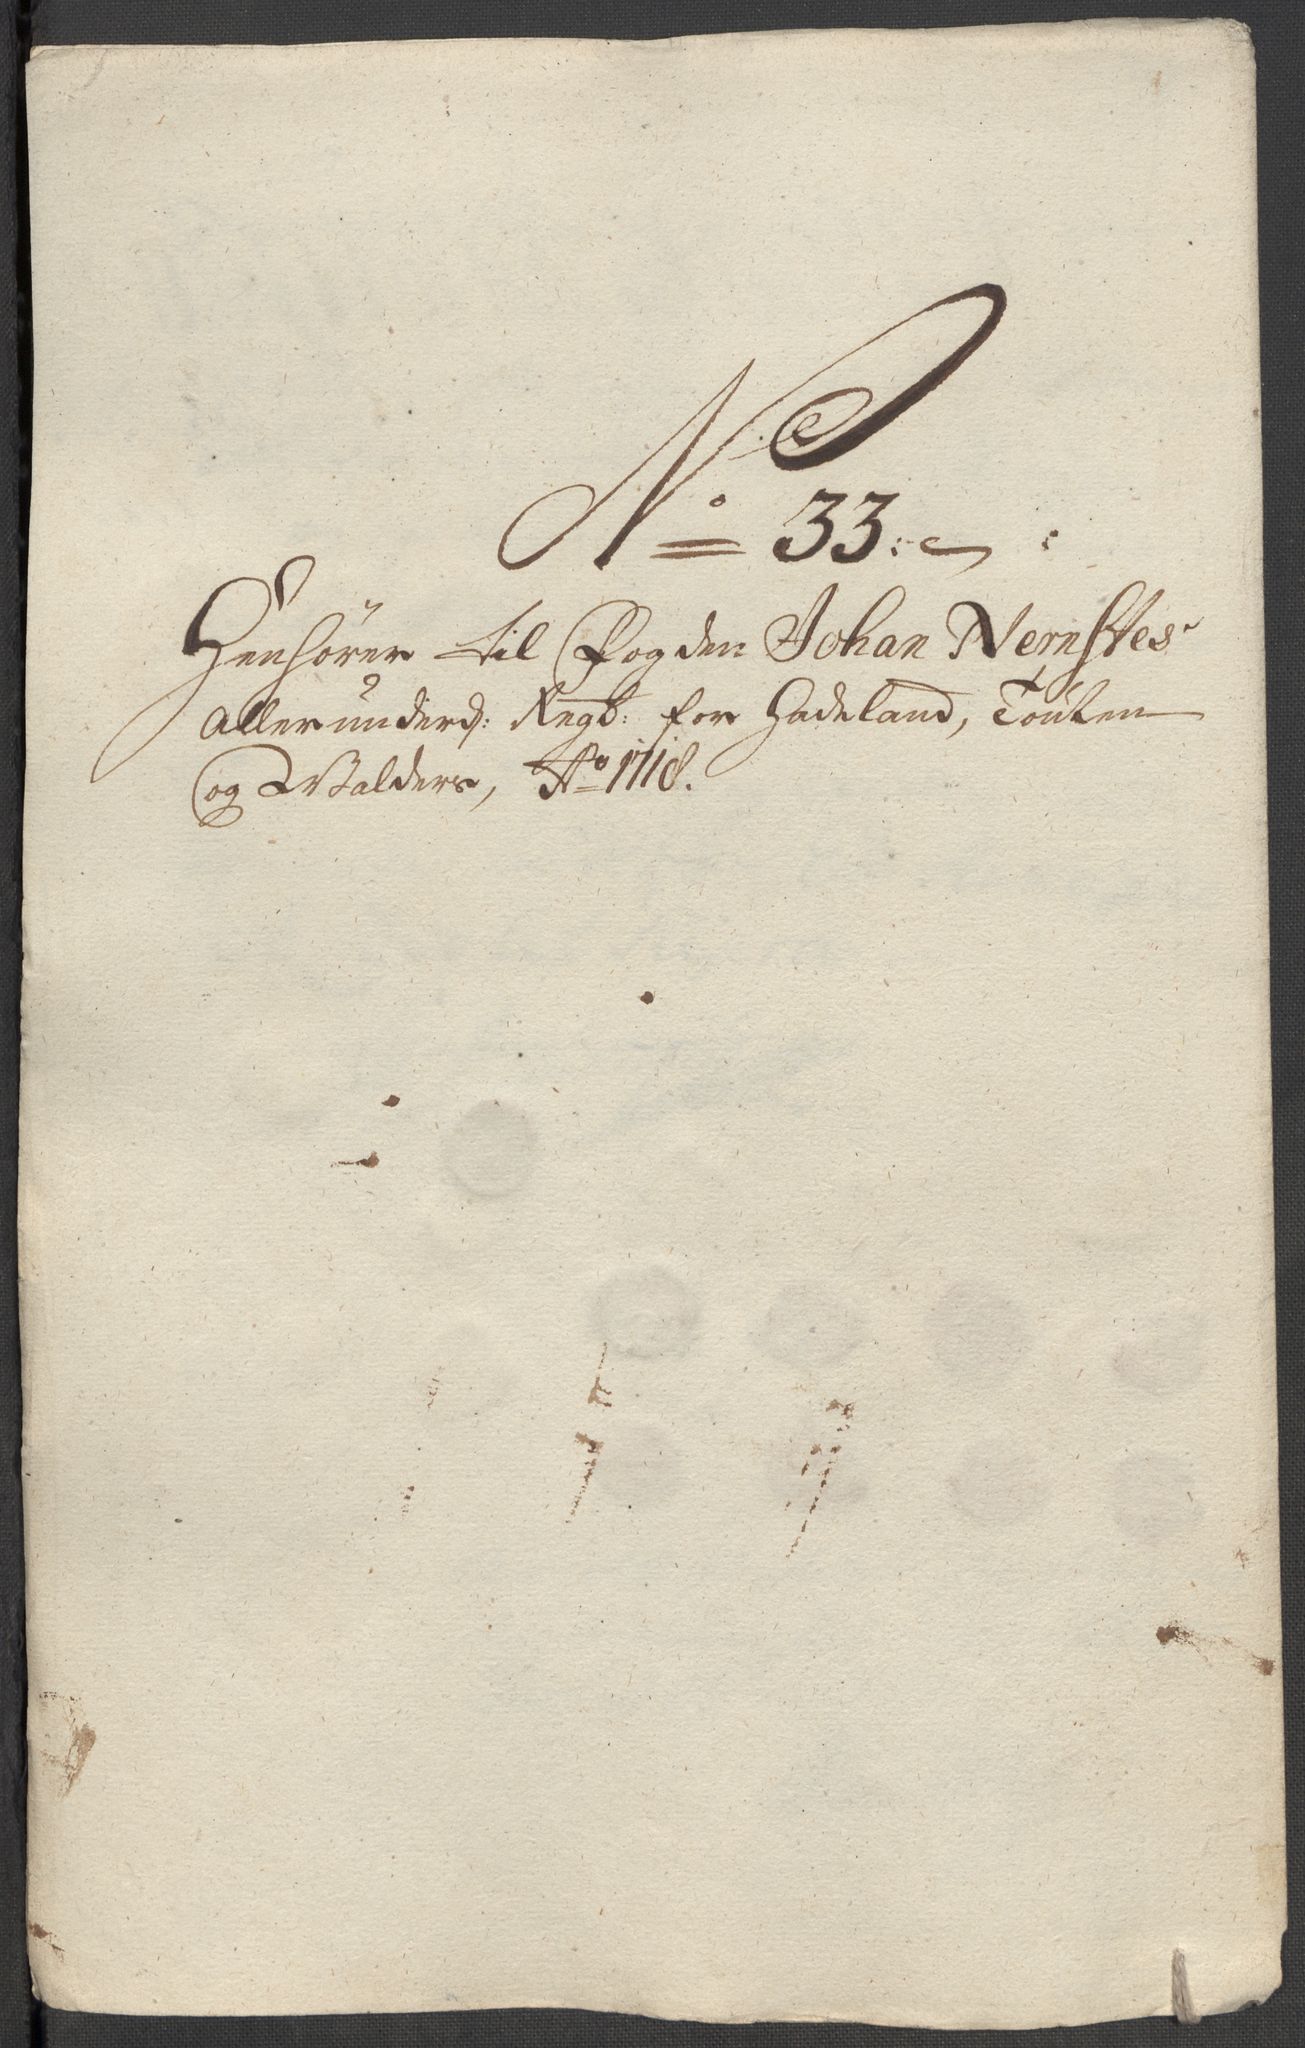 No 33.
Henhører til Fogden Johan Nernstes
allerunderd: Regb: for Hadeland, Touten
og Walders, Ao 1718.